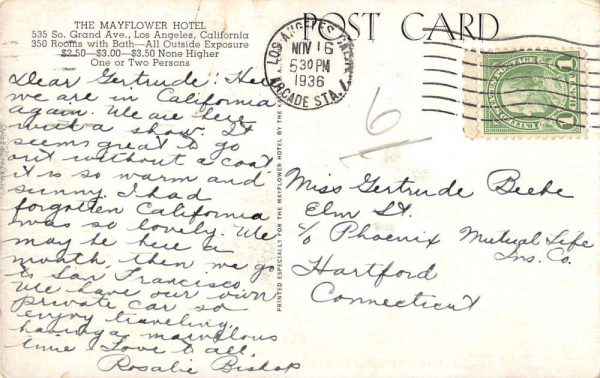 THE MAYFLOWER HOTEL
535 So. Grand Ave., Los Angeles, California
350 Rooms with Bath—All Outside Exposure
$2.50—$3.00—$3.50 None Higher
One or Two Persons
POST CARD
LOS ANGELES, CALIF.
NOV 16
5 30 PM
1936
ARCADE STA.
Dear Gertrude: Here
we are in California
again. We are here
with a show. It
seems great to go
out without a coat
it is so warm and
sunny. I had
forgotten California
was so lovely. We
may be here a
month then we go
to San Francisco.
We have our own
private car so
enjoy traveling.
having a marvelous
time Love to all,
Rosalie Bishop
PRINTED ESPECIALLY FOR THE MAYFLOWER HOTEL BY THE
6
Miss Gertrude Beebe
Elm St.
c/o Phoenix Mutual Life
Ins. Co.
Hartford
Connecticut
1 CENT 1